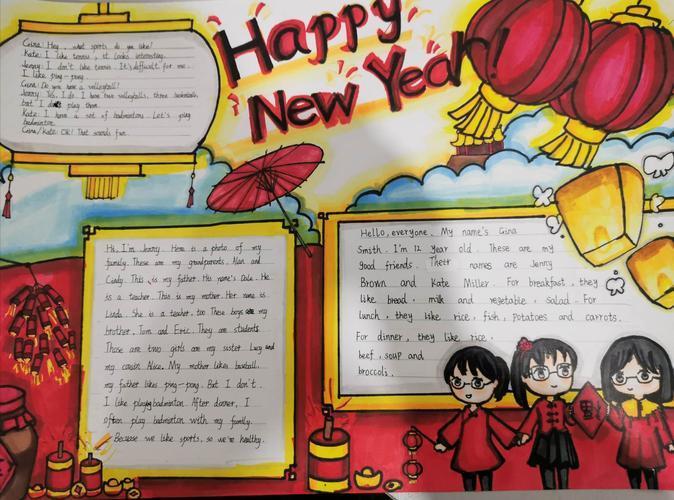 Happy
New Year!
Gina: Hey, what sports do you like?
Kate: I like tennis, it looks interesting.
Jenny: I don't like tennis. It's difficult for me.
I like ping-pong.
Gina: Do you have a volleyball?
Jenny: Yes, I do. I have two volleyballs, three basketballs,
but I don't play them.
Kate: I have a set of badmintons. Let's going
badminton.
Gina/Kate: OK! That sounds fun.
Hi, I'm Jenny. Here is a photo of my
family. These are my grandparents, Alan and
Cindy. This is my father. His name's Dale. He
is a teacher. This is my mother. Her name is
Linda. She is a teacher, too. These boys are my
brother, Tom and Eric. They are students.
Those are two girls are my sister Lucy and
my cousin Alice. My mother likes baseball,
my father likes ping-pong. But I don't.
I like play badminton. After dinner, I
often play badminton with my family.
Because we like sports, so we're healthy.
Hello, everyone. My name's Gina
Smith. I'm 12 year old. These are my
good friends. Their names are Jenny
Brown and Kate Miller. For breakfast, they
like bread, milk and vegetable, salad. For
lunch, they like rice, fish, potatoes and carrots.
For dinner, they like rice,
beef, soup and
broccoli.
福